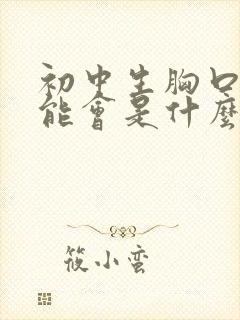 初中生胸口
能會是什麼
筱小蛮